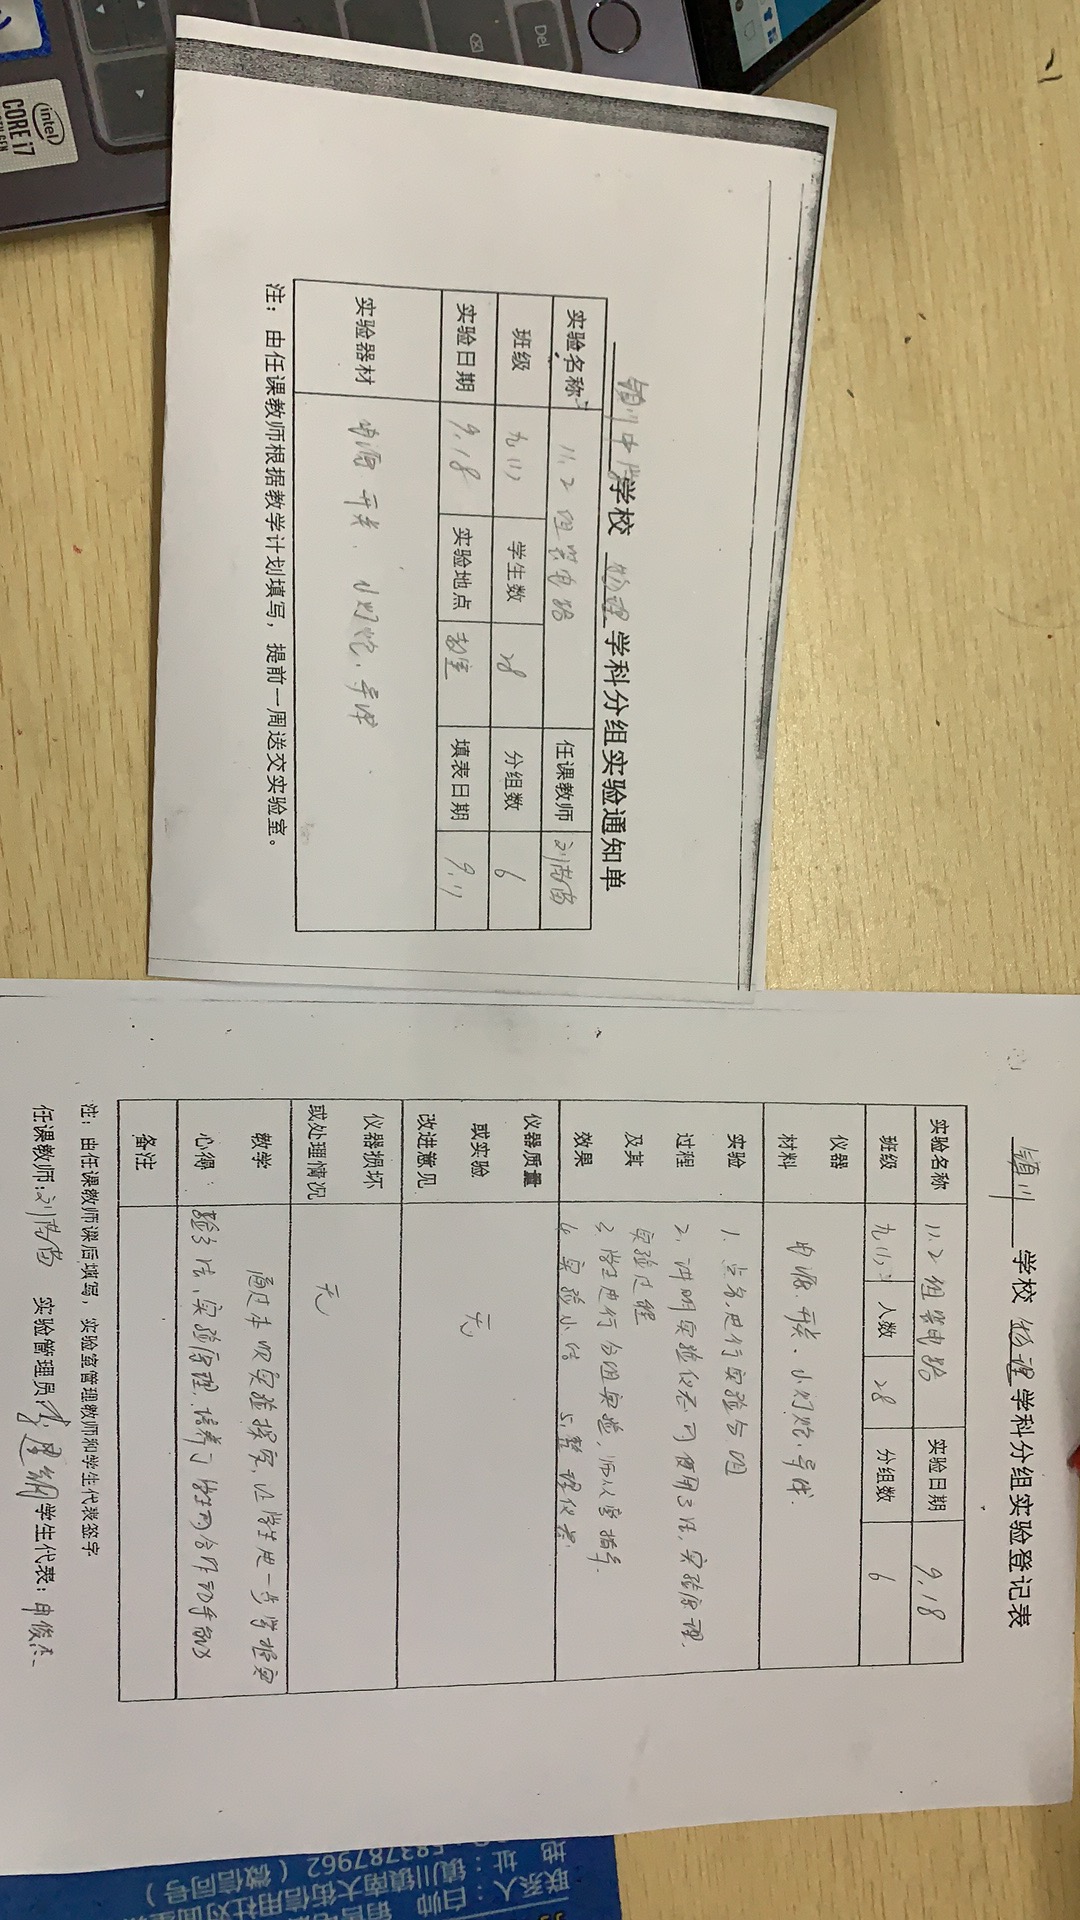 镇川中学学校 物理 学科分组实验通知单
实验名称 11.2 组装电路 任课教师
班级 九(1) 学生数 28 分组数 6
实验日期 9.18 实验地点 教室 填表日期 9.11
实验器材 电源 开关、小灯炮、导线
注：由任课教师根据教学计划填写，提前一周送交实验室。
镇川 学校 物理 学科分组实验登记表
实验名称 11.2 组装电路 实验日期 9.18
班级 人数 28 分组数 6
仪器材料 电源、开关、小灯炮、导线.
实验过程及其效果
1. 点名,进行实验分组
2. 讲明实验仪器的使用方法,实验原理.
实验过程
3. 学生进行分组实验,师从旁指导.
4. 实验小结 5. 整理仪器
仪器质量或实验改进意见 无
仪器损坏或处理情况 无
教学心得：
通过本次实验探究,让学生进一步掌握实
验方法、实验原理,培养了学生的合作动手能力
备注
注：由任课教师课后填写，实验室管理教师和学生代表签字
任课教师: 实验管理员 学生代表：申俊杰
intel
CORE i7
Del
583787962（微信同号）
地 址：镇川镇南大街信用社对面
联系人：白帅